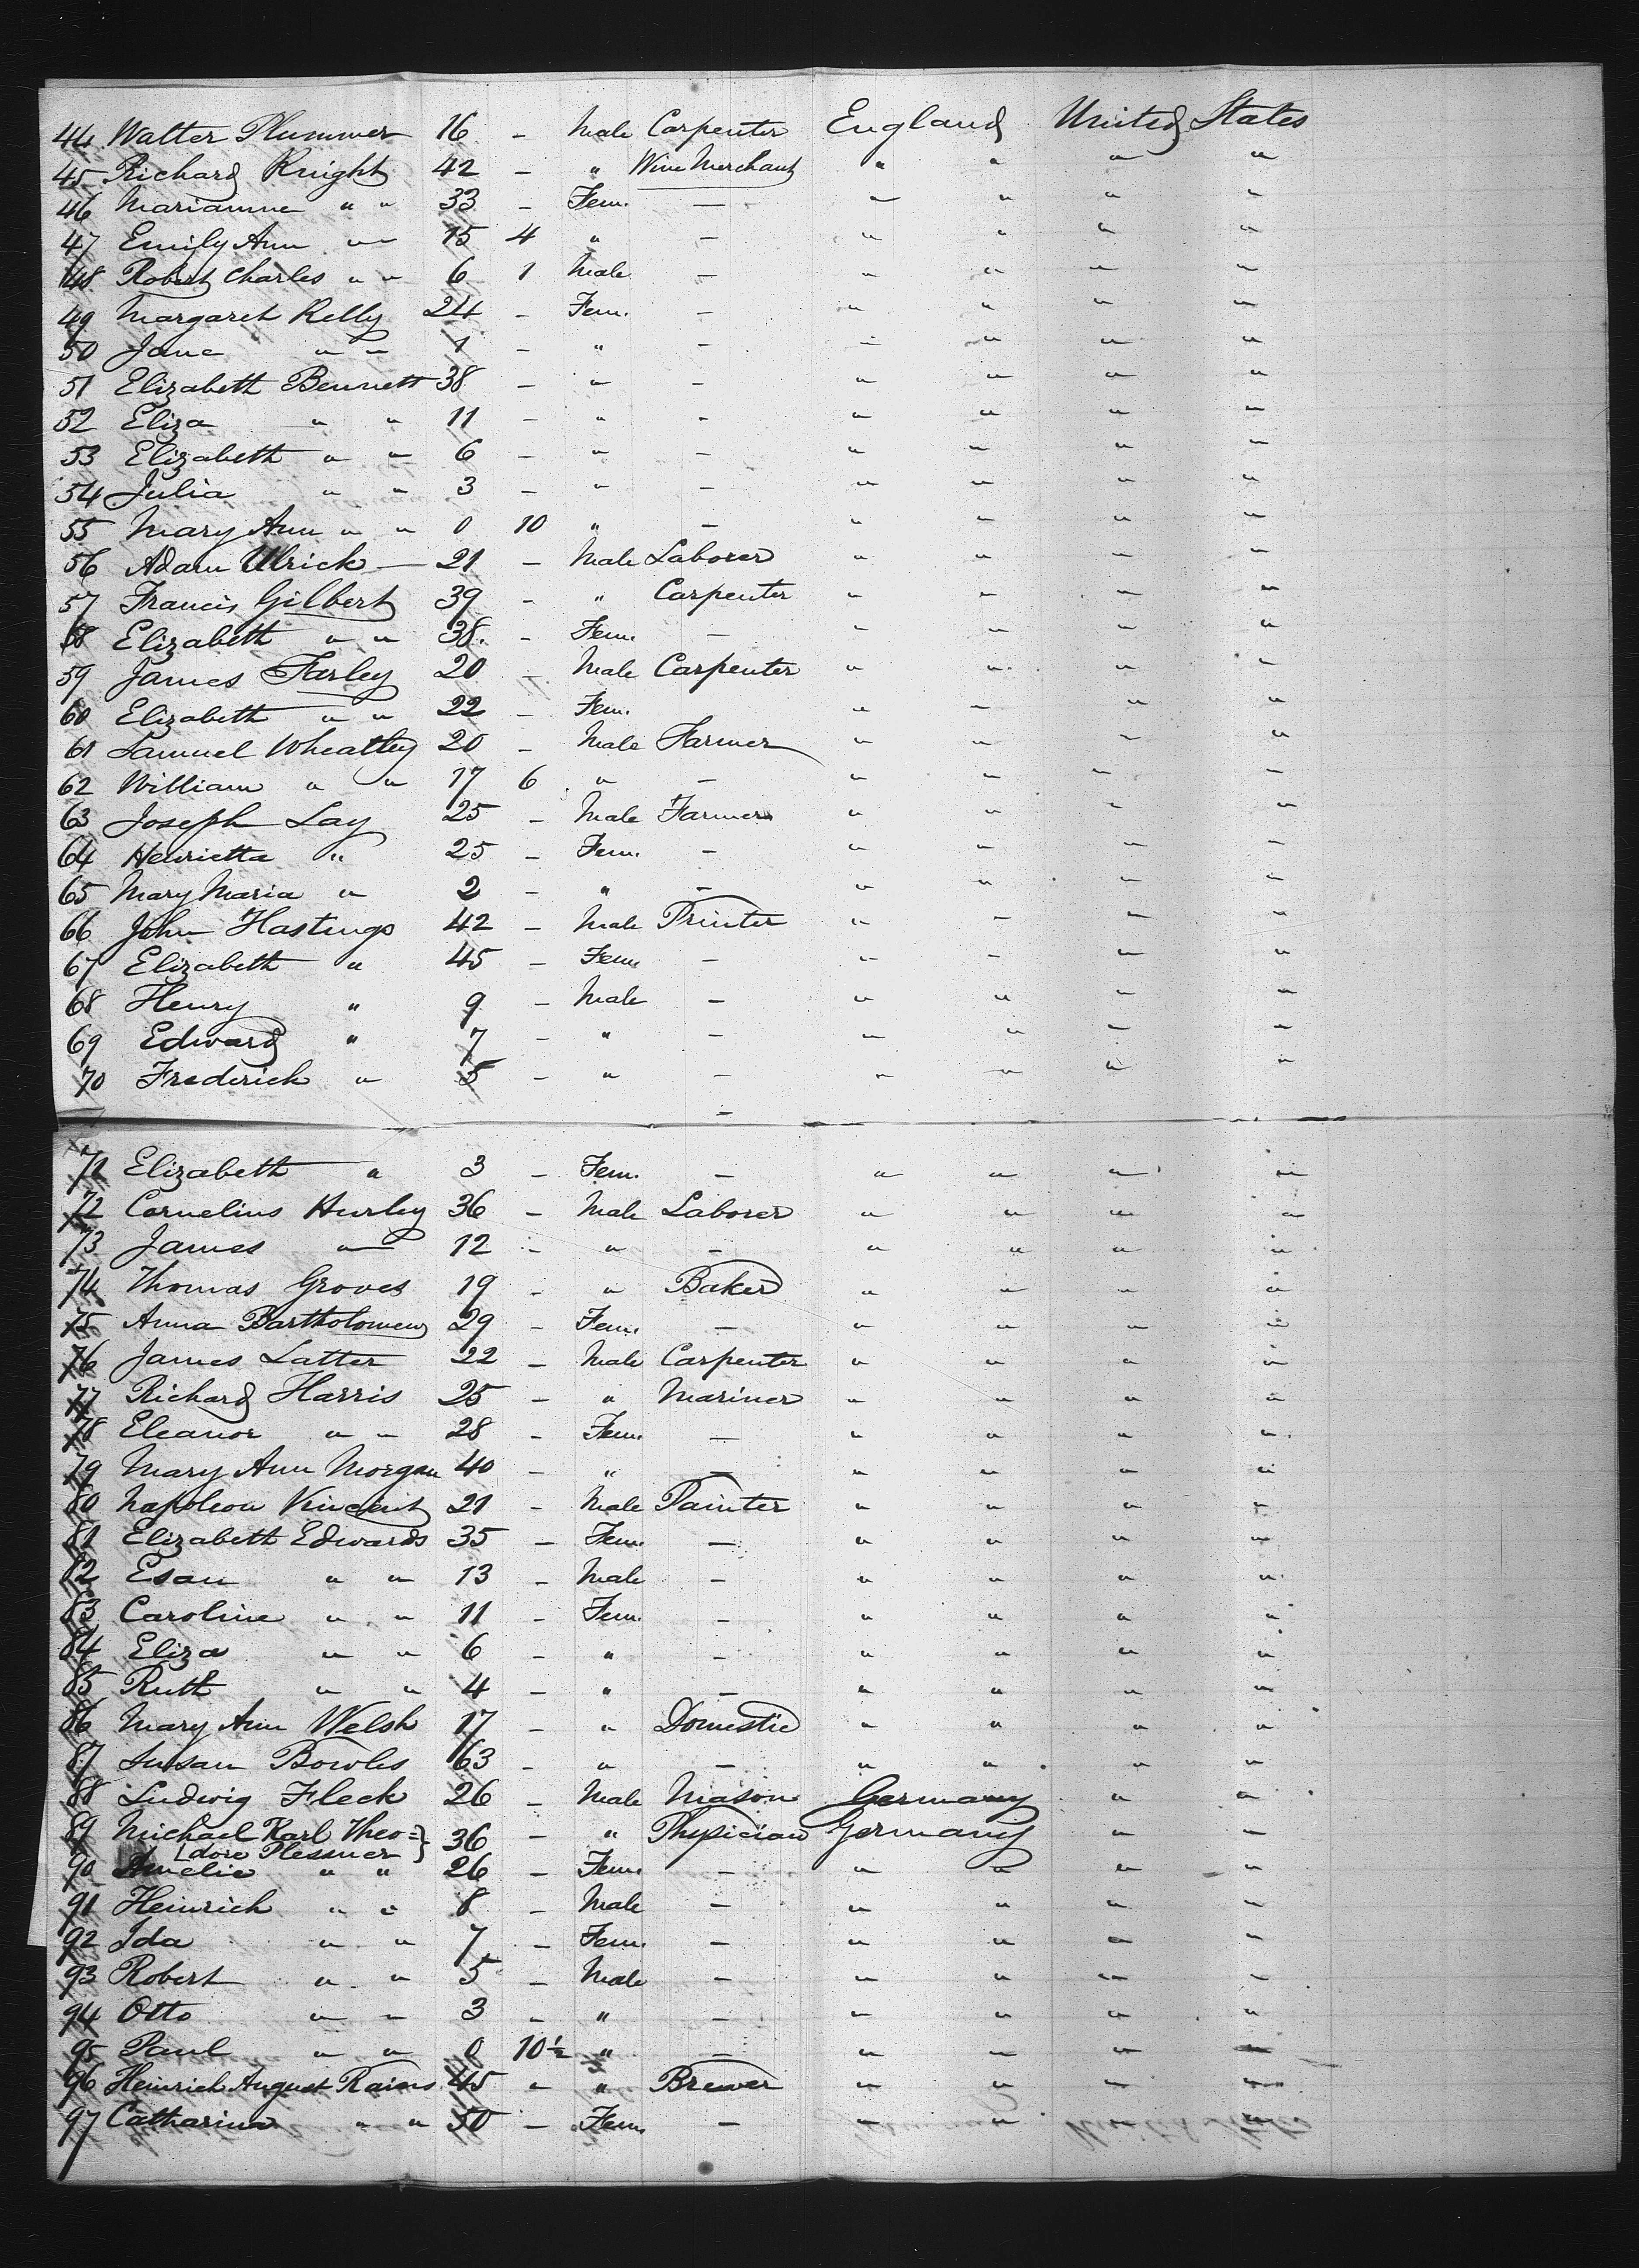 44 Walter Plummer 16 - Male Carpenter England United States
45 Richard Knight 42 - " Wine Merchant " " " "
46 Marianne " " 33 - Fem. - " " " "
47 Emily Ann " " 15 4 " - " " " "
48 Robert Charles " " 6 1 Male - " " " "
49 Margaret Kelly 24 - Fem. - " " " "
50 Jane " " 1 - " - " " " "
51 Elizabeth Bennett 38 - " - " " " "
52 Eliza " " 11 - " - " " " "
53 Elizabeth " " 6 - " - " " " "
54 Julia " " 3 - " - " " " "
55 Mary Ann " " 0 10 " - " " " "
56 Adam Ulrick - 21 - Male Laborer " " " "
57 Francis Gilbert 39 - " Carpenter " " " "
58 Elizabeth " " 38. - Fem. - " " " "
59 James Farley 20 - Male Carpenter " " " "
60 Elizabeth " " 22 - Fem. " " " "
61 Samuel Wheatley 20 - Male Farmer " " " "
62 William " " 17 6 " - " " " "
63 Joseph Lay 25 - Male Farmer " " " "
64 Henrietta " 25 - Fem. - " " " "
65 Mary Maria " 2 - " - " " " "
66 John Hastings 42 - Male Printer " " " "
67 Elizabeth " 45 - Fem. - " " " "
68 Henry " 9 - Male - " " " "
69 Edward " 7 - " - " " " "
70 Frederick " 5 - " - " " " "
-
71 Elizabeth " 3 - Fem. - " " " "
72 Cornelius Hurley 36 - Male Laborer " " " "
73 James " 12 - " - " " " "
74 Thomas Groves 19 - " Baker " " " "
75 Anna Bartholomew 29 - Fem. - " " " "
76 James Latter 22 - Male Carpenter " " " "
77 Richard Harris 25 - " Mariner " " " "
78 Eleanor " " 28 - Fem. - " " " "
79 Mary Ann Morgan 40 - " - " " " "
80 Napoleon Vincent 21 - Male Painter " " " "
81 Elizabeth Edwards 35 - Fem. - " " " "
82 Esau " " 13 - Male - " " " "
83 Caroline " " 11 - Fem. - " " " "
84 Eliza " " 6 - " - " " " "
85 Ruth " " 4 - " - " " " "
86 Mary Ann Welsh 17 - " Domestic " " " "
87 Susan Bowles 63 - " - " " " "
88 Ludwig Fleck 26 - Male Mason Germany " "
89 Michael Karl Theo= 36 - " Physician Germany " "
dore Plessner
90 Amelie " " 26 - Fem. - " " " "
91 Heinrich " " 8 - Male - " " " "
92 Ida " " 7 - Fem. - " " " "
93 Robert " " 5 - Male - " " " "
94 Otto " " 3 - " - " " " "
95 Paul " " 0 10½ " - " " " "
96 Heinrich August Rains 45 - " Brewer " " " "
97 Catharina " " 50 - Fem. - " " " "